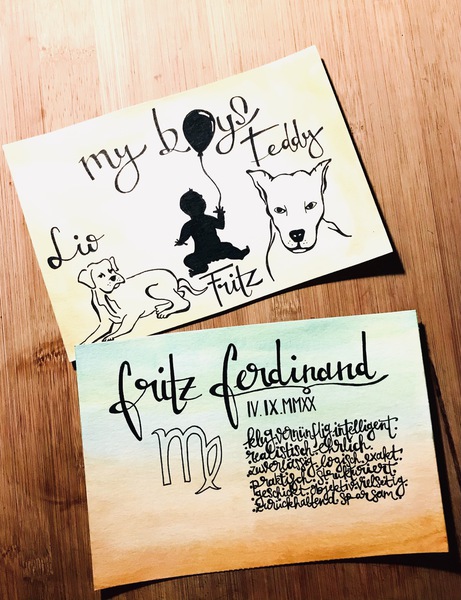 my boys
Teddy
Lio
Fritz
fritz ferdinand
IV.IX.MMXX
klug.vernünftig.intelligent.
realistisch.ehrlich.
zuverlässig.logisch.exakt.
praktisch.strukturiert.
geschickt.objektiv.vielseitig.
zurückhaltend.sparsam